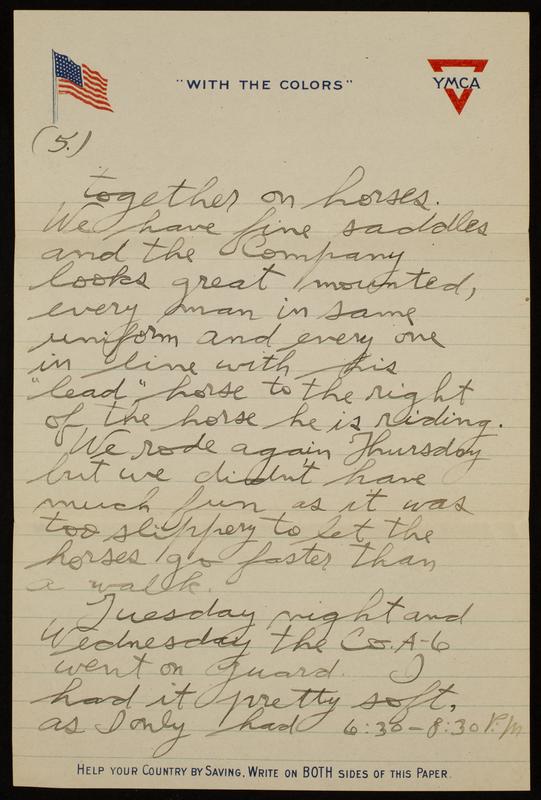 "WITH THE COLORS"
YMCA
(5.)
together on horses.
We have fine saddles
and the Company
looks great mounted,
every man in same
uniform and every one
in line with his
"lead" horse to the right
of the horse he is riding.
We rode again Thursday
but we didn't have
much fun as it was
too slippery to let the
horses go faster than
a walk.
Tuesday night and
Wednesday the Co. A-6
went on guard. I
had it pretty soft,
as I only had 6:30-8:30 P.M
HELP YOUR COUNTRY BY SAVING. WRITE ON BOTH SIDES OF THIS PAPER.